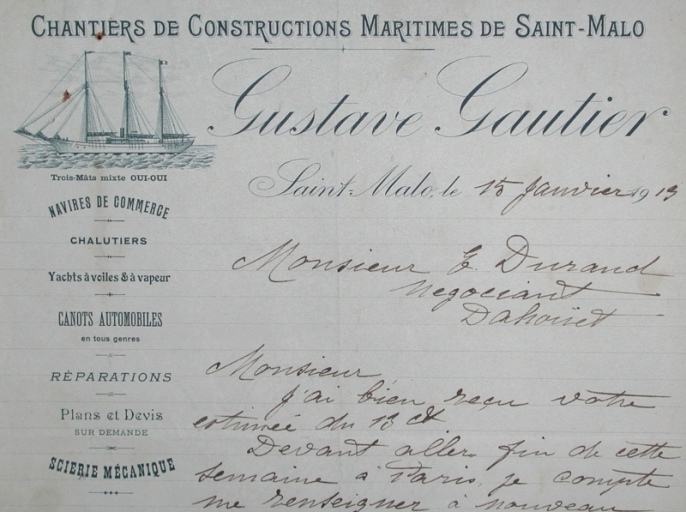 CHANTIERS DE CONSTRUCTIONS MARITIMES DE SAINT-MALO
Gustave Gautier
Trois-Mâts mixte OUI-OUI
Saint-Malo, le 15 Janvier 1913
NAVIRES DE COMMERCE
CHALUTIERS
Yachts à voiles & à vapeur
CANOTS AUTOMOBILES
en tous genres
RÉPARATIONS
Plans et Devis
SUR DEMANDE
SCIERIE MÉCANIQUE
Monsieur E. Durand
Negociant
Dahouët
Monsieur
J'ai bien reçu votre
estimée du 13 ct
Devant aller fin de cette
semaine a Paris, je compte
me renseigner à nouveau